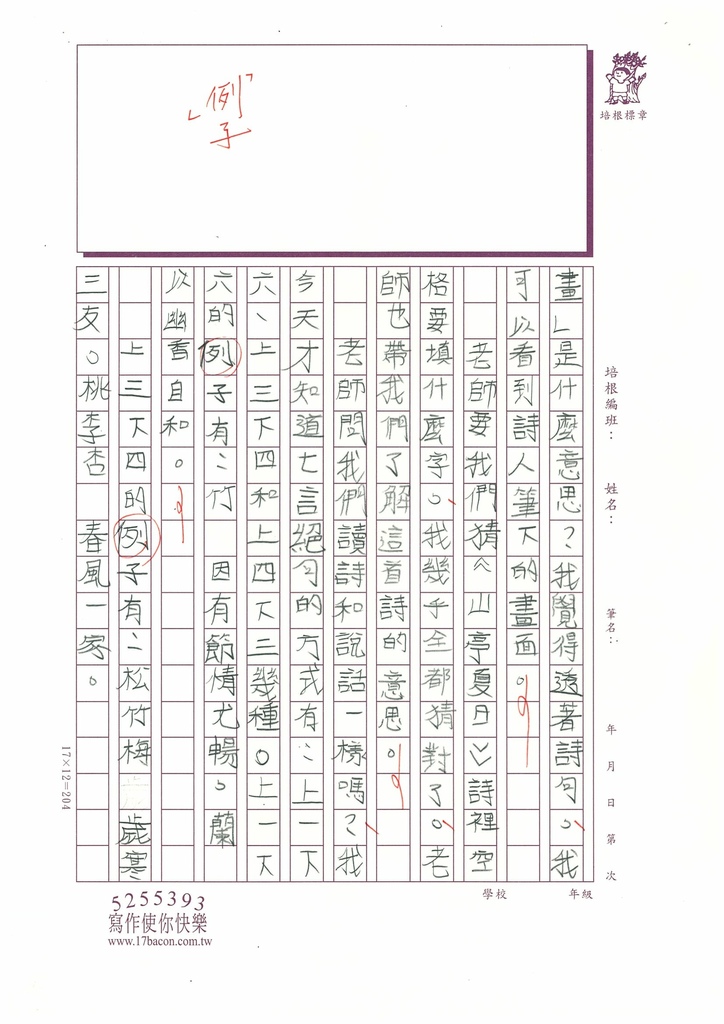 「例子」
培根標章
培根編班：
姓名：
筆名：
年 月 日 第 次
學校
年級
畫」是什麼意思？我覺得透著詩句。我
可以看到詩人筆下的畫面。
老師要我們猜︿山亭夏日﹀詩裡空
格要填什麼字。我幾乎全都猜對了。老
師也帶我們了解這首詩的意思。
老師問我們讀詩和說話一樣嗎？我
今天才知道七言絕句的方式有：上一下
六、上三下四和上四下三幾種。上一下
六的例子有：竹 因有節情尤暢。蘭
以幽香自和。
上三下四的例子有：松竹梅 歲寒
三友。桃李杏 春風一家。
17×12=204
5255393
寫作使你快樂
www.17bacon.com.tw